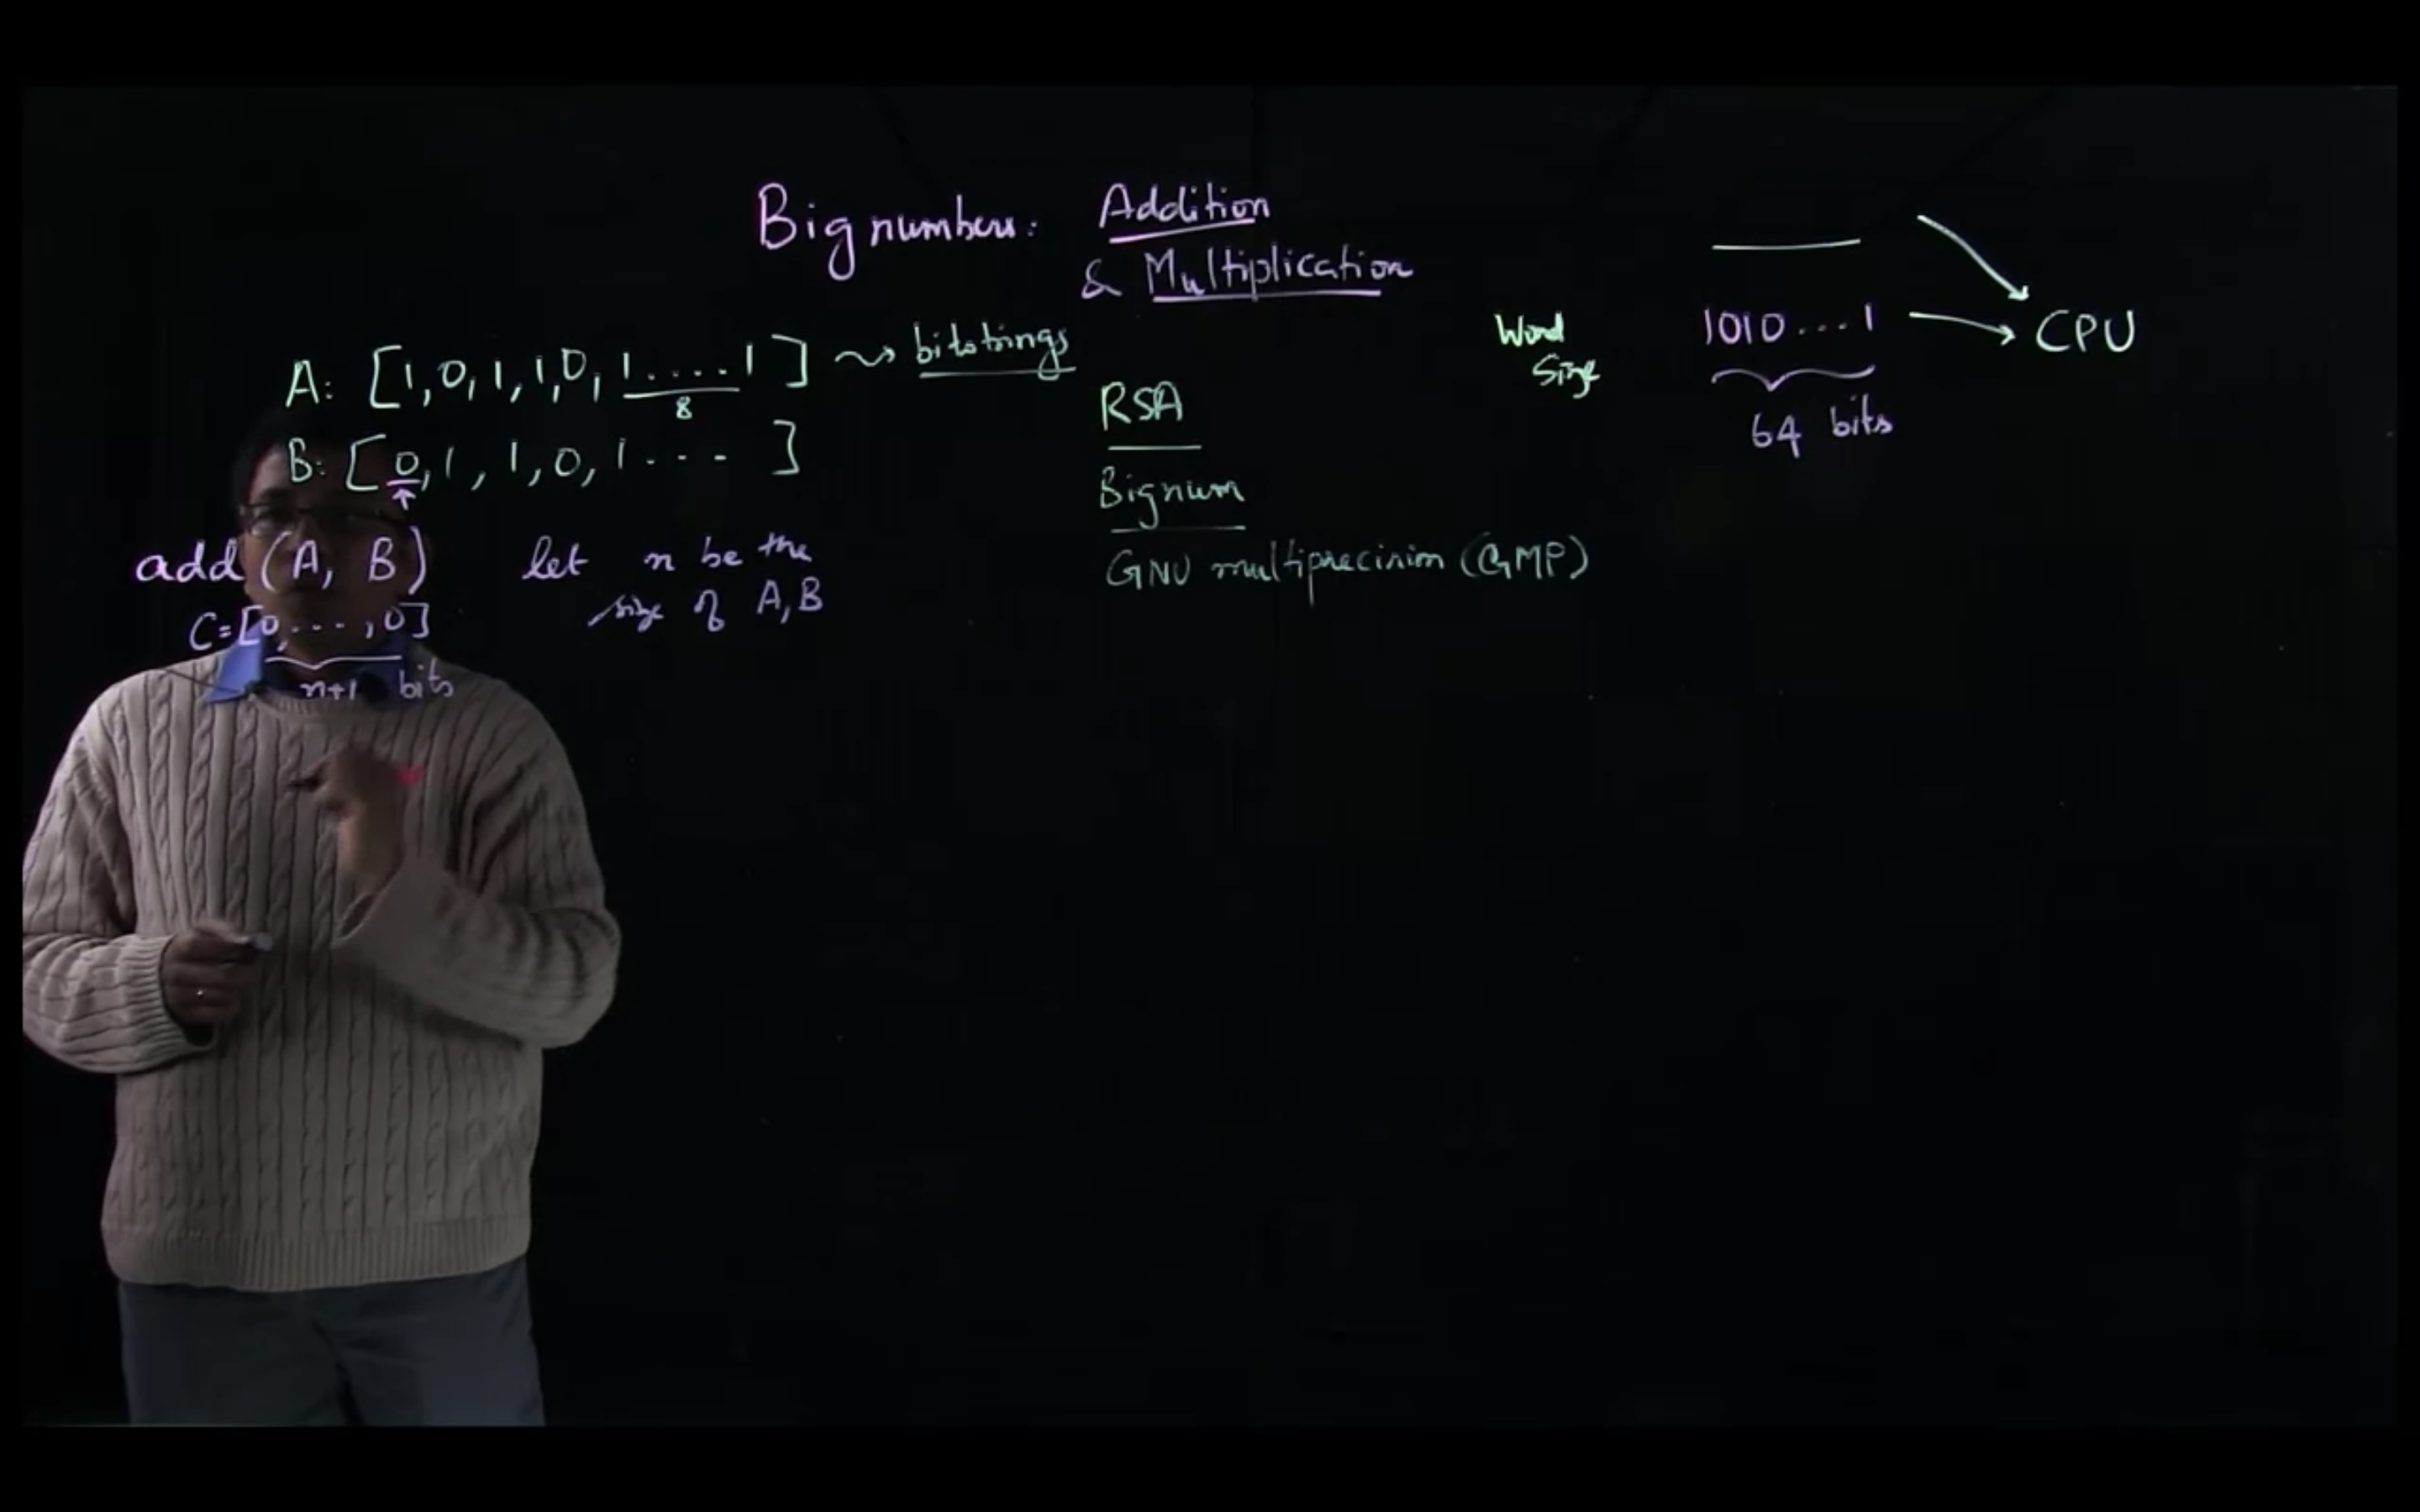 Big numbers: Addition
& Multiplication
A: [1,0,1,1,0,1....1] ⤳ bitstrings
8
B: [0,1,1,0,1... ]
↑
add (A, B)
C=[0,...,0]
n+1 bits
let n be the
size of A,B
RSA
Bignum
GNU multiprecision (GMP)
Word
Size
1010...1 → CPU
64 bits